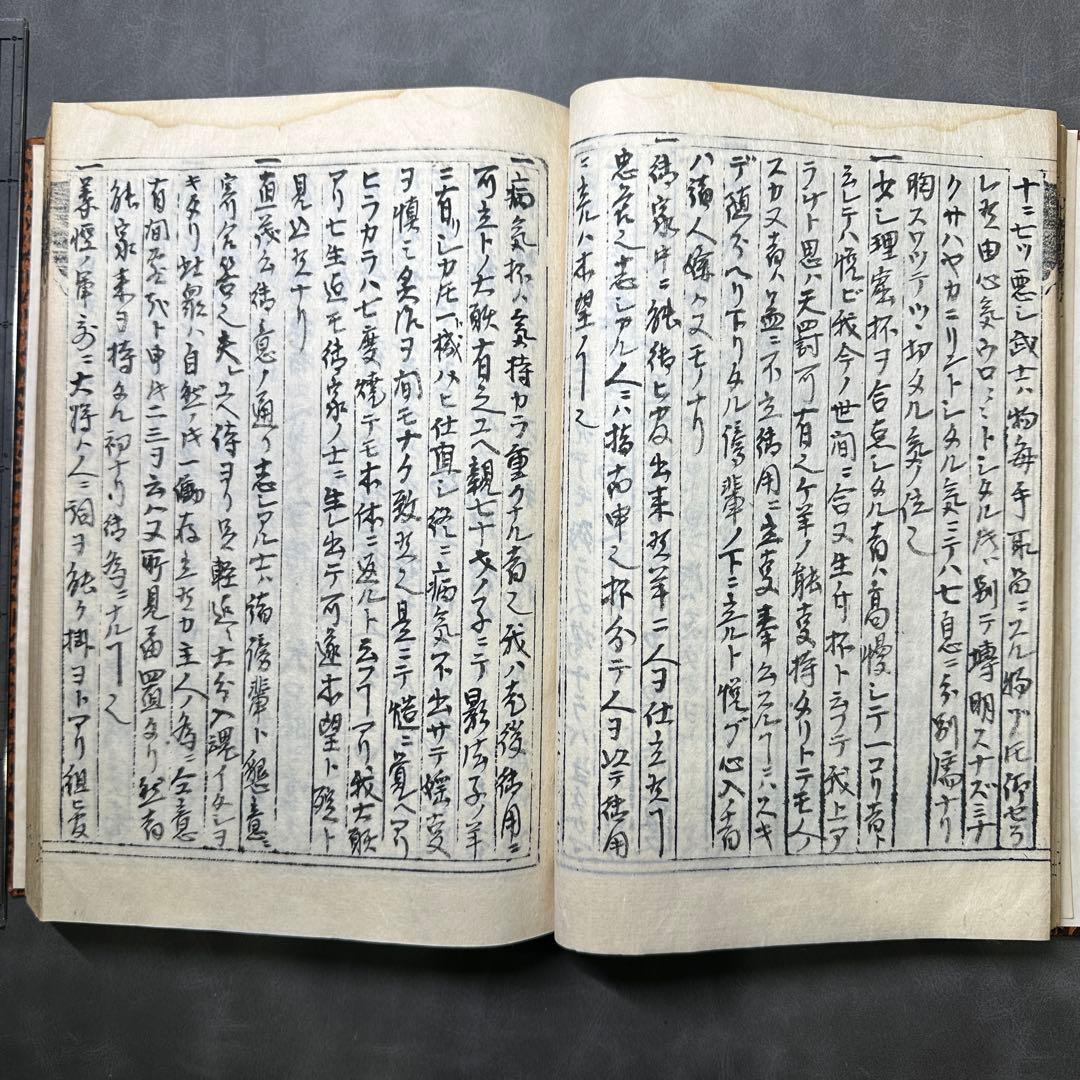 十ニ七ツ悪シ武士ハ物毎手取早ニスル物ゾト仰セラ
レ候由心気ウロ〱トシタル時ハ別テ埒明スナズミナ
クサハヤカニリントシタル気ニテハ七息ニ分別濟ナリ
胸スワツテツヽ切タル気ノ位也
一少シ理窟杯ヲ合点シタル者ハ高慢シテ一フリ者ト
云レテハ悦ビ我今ノ世間ニ合ヌ生付杯ト云テ我上ア
ラナト思ハ天罰可有之ケ羊ノ能事持タリトテモ人ノ
スカヌ者ハ益ニ不立御用ニ立事奉公スル丁ニハスキ
デ随分ヘリ下リタル傍輩ノ下ニ立ルト悦ブ心入ノ者
ハ諸人嫌ハヌモノナリ
一御家中ニ能御ヒ官出来候羊ニ人ヲ仕立候丁
忠節也志シアル人ニハ指南申也杯分テ人ヲ以テ御用
ニ立ハ本望ナ丁也
一病気杯ハ気持カラ重クナル者也我ハ老後御用ニ
可立トノ大願有之ユヘ親七十才ノ子ニテ影法子ノ羊
ニ有シカモ一機ハヒ仕直シ終ニ病気不出サテ婬事
ヲ慎ミ灸治ヲ間モナク致候也是ニテ慥ニ覚ヘアリ
ヒラカラハ七度焼テモ本体ニ返ルト云フ丁アリ我大願
アリ七生迄モ御家ノ士ニ生レ出テ可遂本望ト強ト
見込候ナリ
一直茂公御意ノ通リ志シアル士ハ諸傍輩ト懇意ニ
寄合者也夫ユヘ侍ヨリ足軽迄モ大分入魂イタシヨ
キタリ此衆ハ自然ノ時一働存立候カ主人ノ為ニ企意
有間敷ト申時二三ヲ云ハヌ所見届置タリ然者
能家来ヲ持タル初ナリ御為ニナル丁也
一義経ノ軍哥ニ大将ハ人ニ詞ヲ能ク掛ヨトアリ組